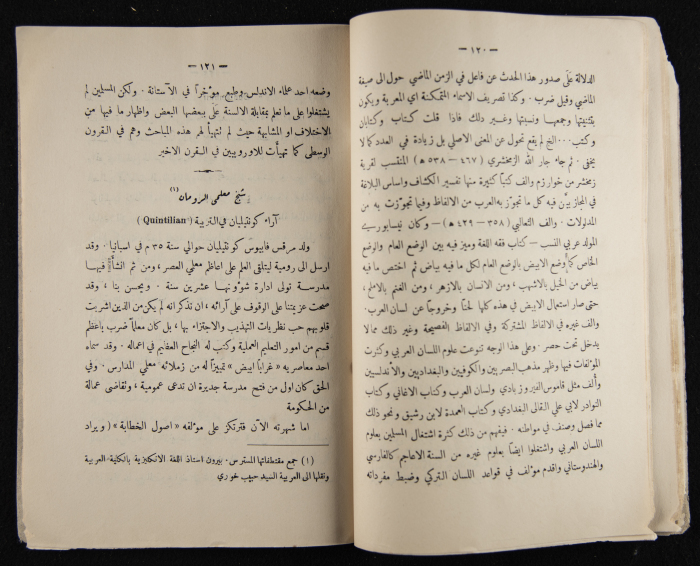 — ١٢٠ —
الدلالة عَلَى صدور هذا الحدث عن فاعل في الزمن الماضي حول الى صيغة
الماضي وقيل ضرب . وكذا تصريف الاسماء المتمكنة اي المعربة ويكون
بتثنيتها وجمعها ونسبتها وغير ذلك فاذا قلت كتاب وكتابان
وكتب ٠٠٠ الخ لم يقع تحول عن المعنى الاصلي بل زيادة في العدد كما لا
يخفى . ثم جاء جار الله الزمخشري (٤٦٧ — ٥٣٨ ه) المنتسب لقرية
زمخشر من خوارزم والف كتبًا كثيرة منها تفسير الكشاف واساس البلاغة
في المجاز بيَّن فيه كل ما تجوّز به العرب من الالفاظ وفيما تجوّزت به من
المدلولات . والف الثعالبي (٣٥٨ — ٤٢٩ ه) — وكان نيسابوريــ
المولد عربي النسب — كتاب فقه اللغة وميز فيه بين الوضع العام والوضع
الخاص كما وضع الابيض بالوضع العام لكل ما فيه بياض ثم اختص ما فيه
بياض من الخيل بالاشهب ، ومن الانسان بالازهر ، ومن الغنم بالاملح ،
حتى صار استعمال الابيض في هذه كلها لحنًا وخروجًا عن لسان العرب.
والف غيره في الالفاظ المشتركة وفي الالفاظ الفصيحة وغير ذلك مما لا
يدخل تحت حصر . وعلى هذا الوجه تنوعت علوم اللسان العربي وكثرت
المؤلفات فيها وظهر مذهب البصريين والكوفيين والبغداديين والاندلسيين
وأُلف مثل قاموس الفيروزبادي ولسان العرب وكتاب الاغاني وكتاب
النوادر لابي علي القالي البغدادي وكتاب العمدة لابن رشيق ونحو ذلك
مما فصل وصنف في مواطنه . فيفهم من ذلك كثرة اشتغال المسلمين بعلوم
اللسان العربي واشتغلوا ايضًا بعلوم غيره من السنة الاعاجم كالفارسي
والهندوستاني واقدم مؤلف في قواعد اللسان التركي وضبط مفرداته
— ١٢١ —
وضعه احد علماء الاندلس وطبع مؤخراً في الآستانة . ولكن المسلمين لم
يشتغلوا على ما نعلم بمقابلة الالسنة عَلَى بعضها البعض واظهار ما فيها من
الاختلاف او المشابهة حيث لم تتهيأ لهم هذه المباحث وهم في القرون
الوسطى كما تهيأت للاوروبيين في القرن الاخير
شيخ معلمي الرومان (١)
آراء كونتيليان في التربية (Quintilian)
ولد مرقس فابيوس كونتيليان حوالي سنة ٣٥ م في اسبانيا . وقد
ارسل الى رومية ليتلقى العلم على اعاظم معلمي العصر ، ومن ثم انشأ فيها
مدرسة تولى ادارة شؤونها عشرين سنة . ويحسن بنا ، وقد
صحت عزيمتنا على الوقوف على آرائه ، ان نذكر انه لم يكن من الذين اشربت
قلوبهم حب نظريات التهذيب والاجتزاء بها ، بل كان معلماً ضرب باعظم
قسم من امور التعليم العملية وكتب له النجاح العظيم في اعماله . وقد سماه
احد معاصريه « غراباً ابيض » تمييزاً له من زملائه معلمي المدارس . وفي
الحق كان اول من فتح مدرسة جديرة ان تدعى عمومية ، وتقاضى عمالة
من الحكومة
اما شهرته الآن فترتكز على مؤلفه « اصول الخطابة » ( ويراد
(١) جمع مقتطفاتها المسترس . بيرون استاذ اللغة الانكليزية بالكلية العربية
ونقلها الى العربية السيد حبيب خوري